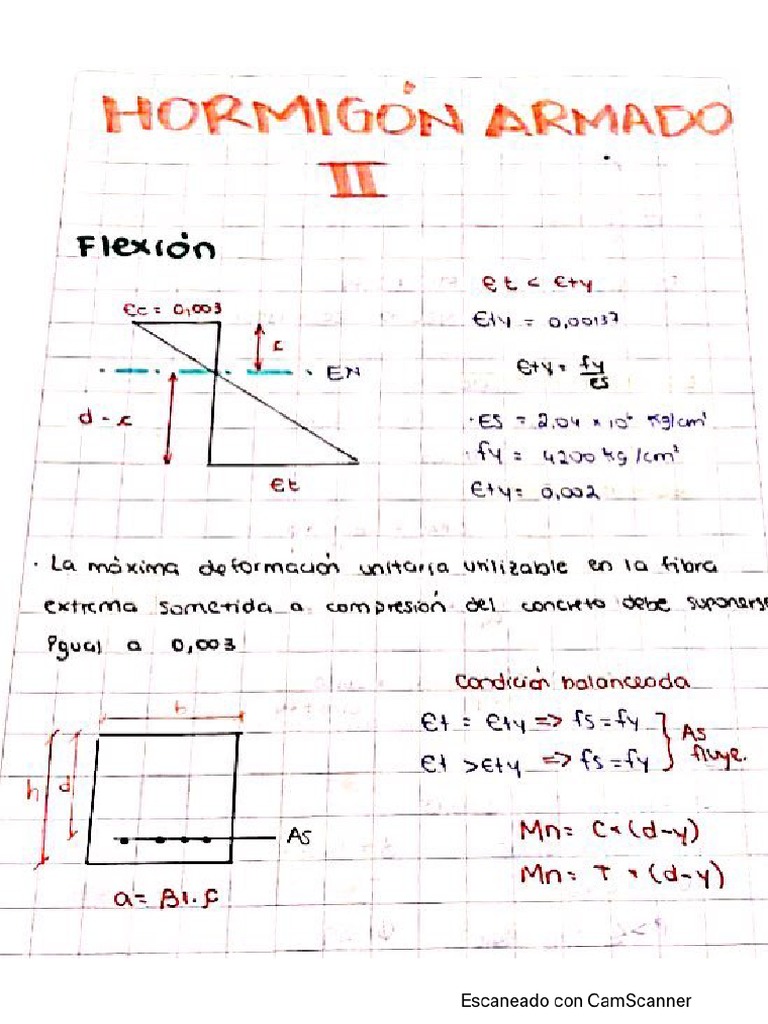 HORMIGÓN ARMADO
II
Flexión
Єc = 0,003
c
EN
d - c
Єt
Єt < Єty
Єty = 0,00137
Єty = fy/ES
· ES = 2,04 × 10⁶ kg/cm²
· fy = 4200 kg/cm²
Єty = 0,002
· La máxima deformación unitaria utilizable en la fibra
extrema sometida a compresión del concreto debe suponerse
igual a 0,003
b
h
d
As
a = β1 . c
Condición balanceada
Єt = Єty => fs = fy
Єt > Єty => fs = fy
As
fluye.
Mn = C * (d-y)
Mn = T * (d-y)
Escaneado con CamScanner